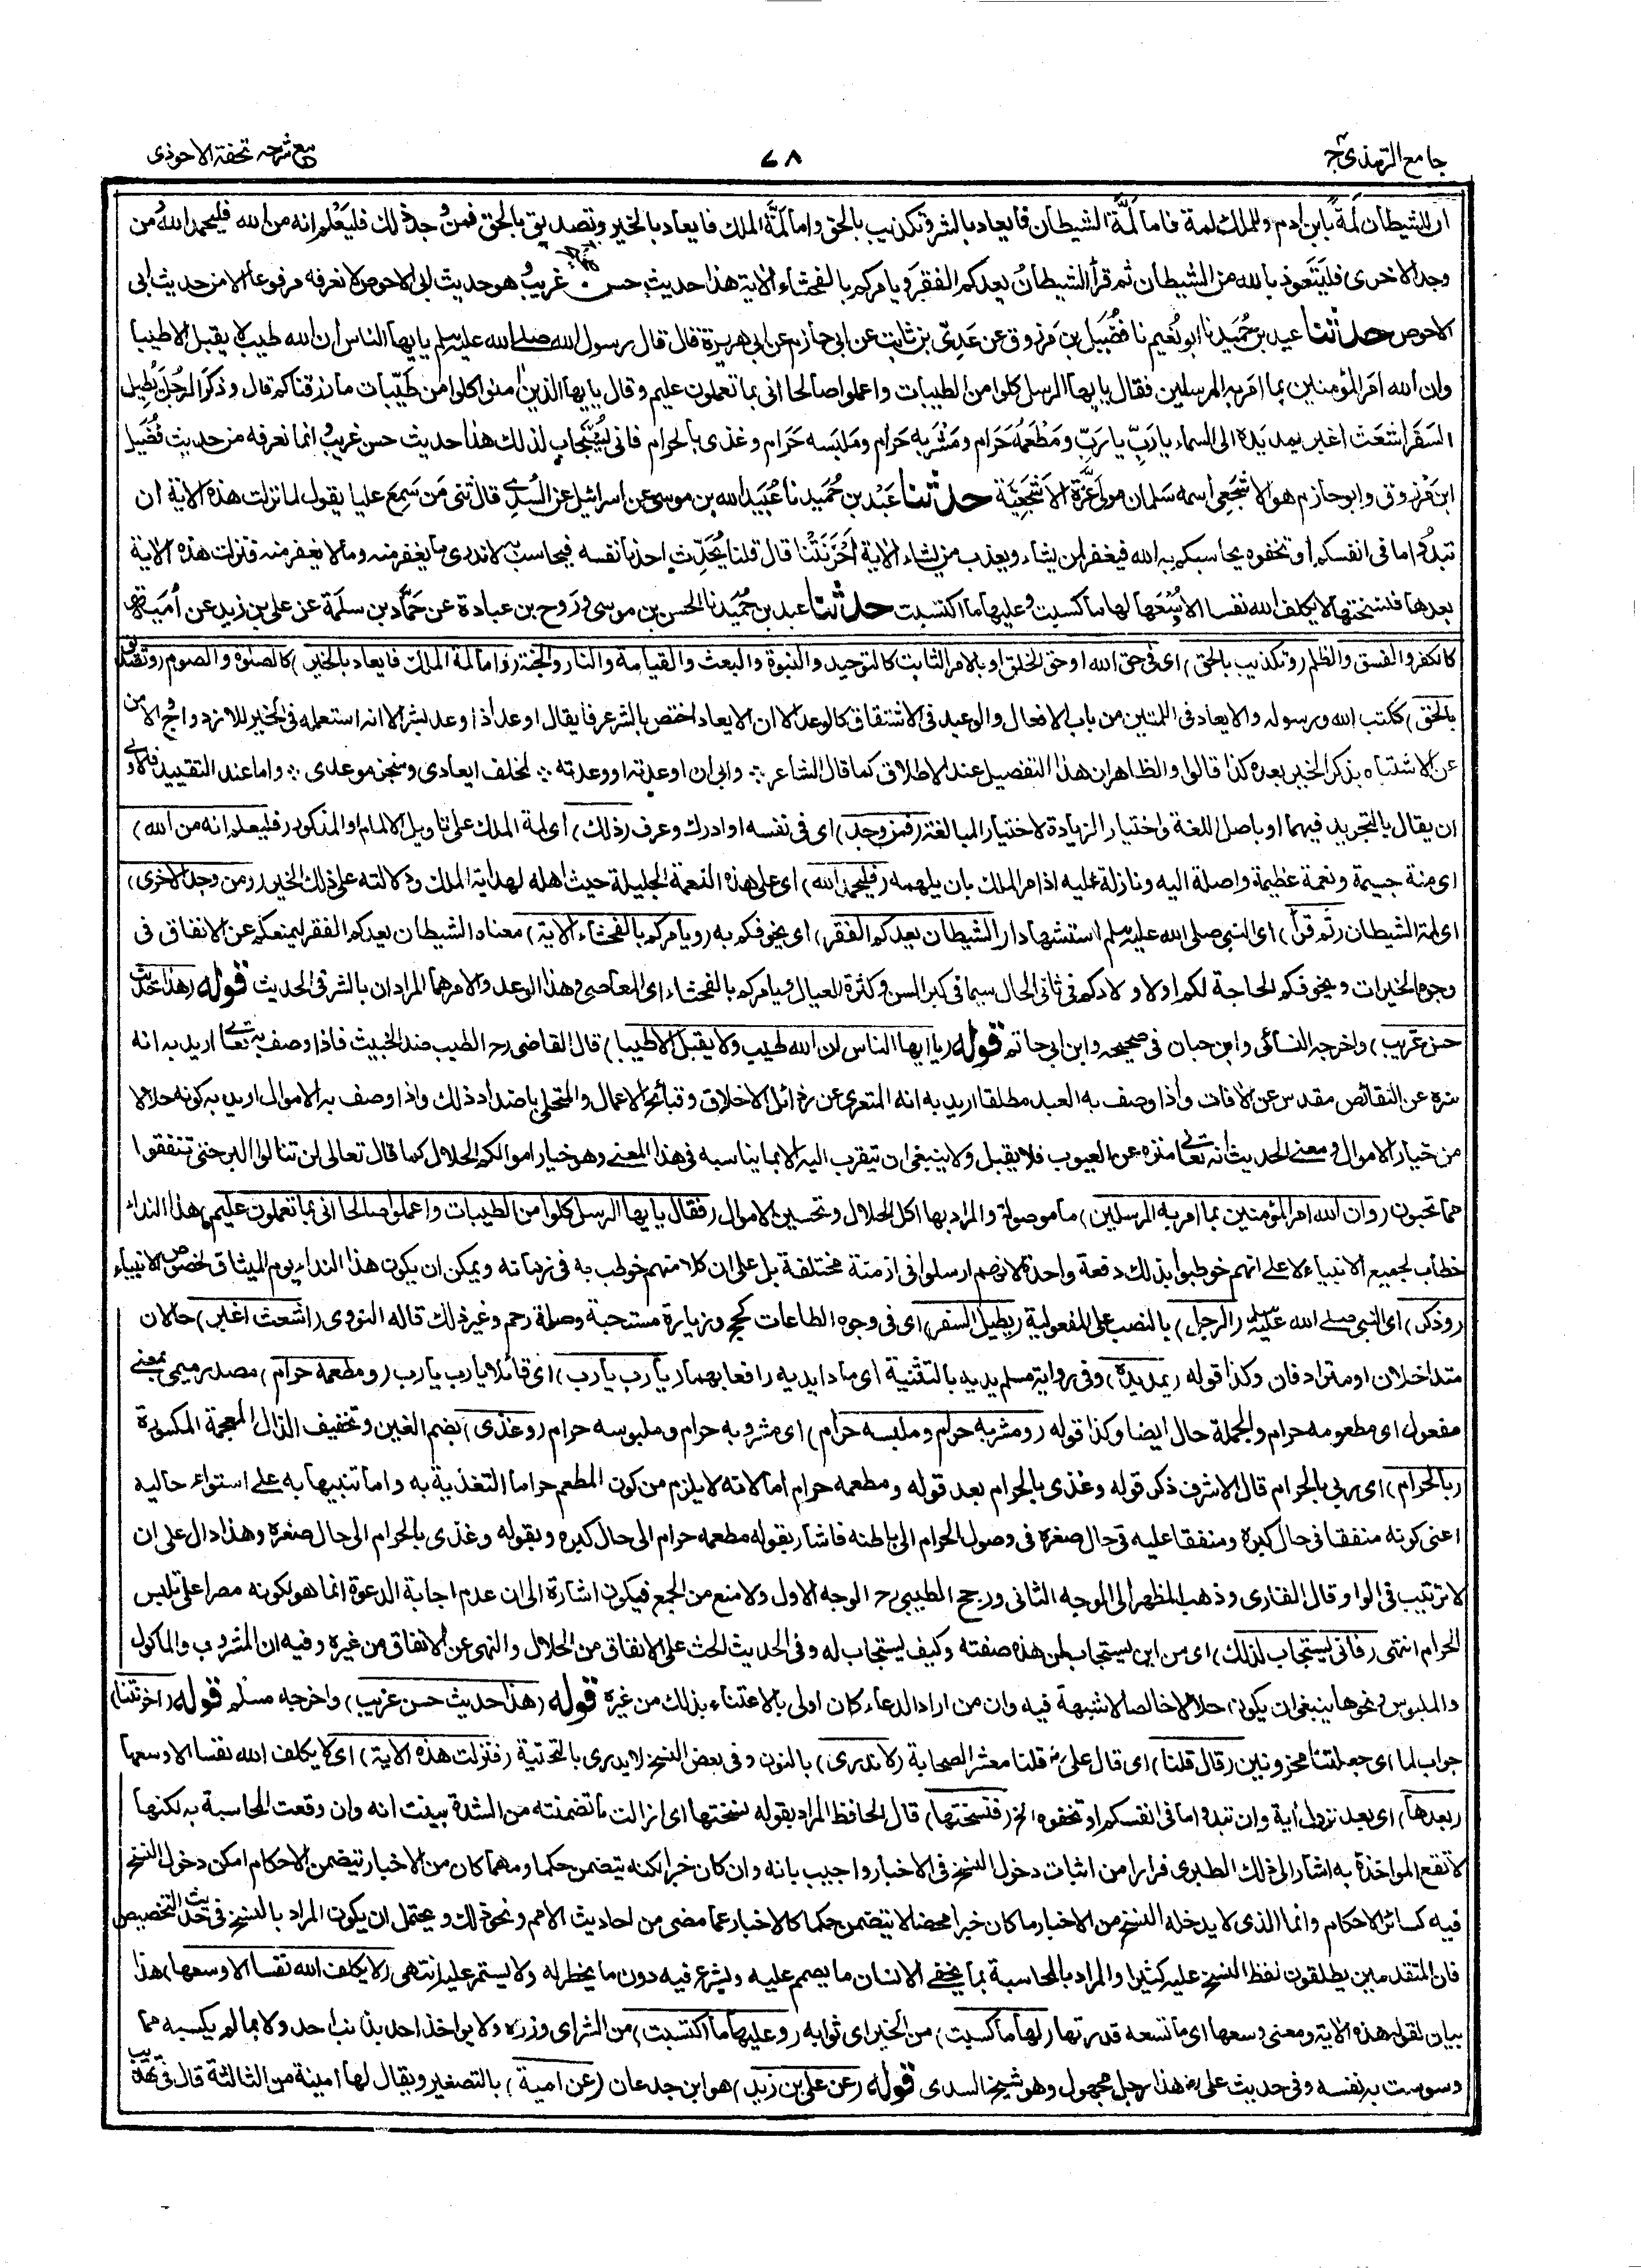 جامع الترمذي ج
٧٨
مع شرحه تحفة الاحوذى
ان للشيطان لمة بابن ادم وللملك لمة فاما لمة الشيطان فايعاد بالشر وتكذيب بالحق واما لمة الملك فايعاد بالخير وتصديق بالحق فمن وجد ذلك فليعلم انه من الله فليحمد الله ومن
وجد الاخرى فليتعوذ بالله من الشيطان ثم قرأ الشيطان يعدكم الفقر ويامركم بالفحشاء الاية هذا حديث حسن غريب وهو حديث ابى الاحوص لا نعرفه مرفوعا الا من حديث ابى
الاحوص حدثنا عبد بن حميد نا ابو نعيم نا فضيل بن مرزوق عن عدى بن ثابت عن ابى حازم عن ابى هريرة قال قال رسول الله صلى الله عليه وسلم يايها الناس ان الله طيب لا يقبل الا طيبا
وان الله امر المؤمنين بما امر به المرسلين فقال يايها الرسل كلوا من الطيبات واعملوا صالحا انى بما تعملون عليم وقال يايها الذين امنوا كلوا من طيبات ما رزقناكم قال وذكر الرجل يطيل
السفر اشعث اغبر يمد يده الى السماء يا رب يا رب ومطعمه حرام ومشربه حرام وملبسه حرام وغذى بالحرام فانى يستجاب لذلك هذا حديث حسن غريب انما نعرفه من حديث فضيل
ابن مرزوق وابو حازم هو الاشجعى اسمه سلمان مولى عزة الاشجعية حدثنا عبد بن حميد نا عبيد الله بن موسى عن اسرائيل عن السدى قال ثنى من سمع عليا يقول لما نزلت هذه الاية ان
تبدوا ما فى انفسكم او تخفوه يحاسبكم به الله فيغفر لمن يشاء ويعذب من يشاء الاية احزنتنا قال قلنا يحدث احدنا نفسه فيحاسب به لا ندرى ما يغفر منه وما لا يغفر منه فنزلت هذه الاية
بعدها فنسختها لا يكلف الله نفسا الا وسعها لها ما كسبت وعليها ما اكتسبت حدثنا عبد بن حميد نا الحسن بن موسى وروح بن عبادة عن حماد بن سلمة عن على بن زيد عن امية
كالكفر والفسق والظلم (وتكذيب بالحق) اى فى حق الله او حق الخلق او بالامر الثابت كالتوحيد والنبوة والبعث والقيامة والنار والجنة (واما لمة الملك فايعاد بالخير) كالصلوة والصوم (وتصديق
بالحق) ككتب الله ورسوله والايعاد فى اللمتين من باب الافعال والوعيد فى الاشتقاق كالوعد الا ان الايعاد اختص بالشر عرفا يقال اوعد اذا وعد بشر الا انه استعمله فى الخير للازدواج والامن
عن الاشتباه بذكر الخير بعده كذا قالوا والظاهر ان هذا التفصيل عند الاطلاق كما قال الشاعر ؞ وانى ان اوعدته او وعدته ؞ لمخلف ايعادى ومنجز موعدى ؞ واما عند التقييد فالاولى
ان يقال بالتجريد فيهما او باصل اللغة واختيار الزيادة لاختيار المبالغة (فمن وجد) اى فى نفسه او ادرك وعرف (ذلك) اى لمة الملك على تاويل الالمام او المذكور (فليعلم انه من الله)
اى منة جسيمة ونعمة عظيمة واصلة اليه ونازلة عليه اذ امر الملك بان يلهمه (فليحمد الله) اى على هذه النعمة الجليلة حيث اهله لهداية الملك ودلالته على ذلك الخير (ومن وجد الاخرى)
اى لمة الشيطان (ثم قرأ) اى النبى صلى الله عليه وسلم استشهادا (الشيطان يعدكم الفقر) اى يخوفكم به (ويامركم بالفحشاء الاية) معناه الشيطان يعدكم الفقر ليمنعكم عن الانفاق فى
وجوه الخيرات ويخوفكم الحاجة لكم او لاولادكم فى ثانى الحال سيما فى كبر السن وكثرة العيال ويامركم بالفحشاء اى المعاصى وهذا الوعد والامر هما المرادان بالشر فى الحديث قوله (هذا حديث
حسن غريب) واخرجه النسائى وابن حبان فى صحيحه وابن ابى حاتم قوله (يا ايها الناس ان الله طيب ولا يقبل الا طيبا) قال القاضى رح الطيب ضد الخبيث فاذا وصف به تعالى اريد به انه
منزه عن النقائص مقدس عن الافات واذا وصف به العبد مطلقا اريد به انه المتعرى عن رذائل الاخلاق وقبائح الاعمال والمتحلى باضداد ذلك واذا وصف به الاموال اريد به كونه حلالا
من خيار الاموال ومعنى الحديث انه تعالى منزه عن العيوب فلا يقبل ولا ينبغى ان يتقرب اليه الا بما يناسبه فى هذا المعنى وهو خيار اموالكم الحلال كما قال تعالى لن تنالوا البر حتى تنفقوا
مما تحبون (وان الله امر المؤمنين بما امر به المرسلين) ما موصولة والمراد بها اكل الحلال وتحسين الاموال (فقال يايها الرسل كلوا من الطيبات واعملوا صالحا انى بما تعملون عليم) هذا النداء
خطاب لجميع الانبياء لا على انهم خوطبوا بذلك دفعة واحدة لانهم ارسلوا فى ازمنة مختلفة بل على ان كلا منهم خوطب به فى زمانه ويمكن ان يكون هذا النداء يوم الميثاق لخصوص الانبياء
(وذكر) اى النبى صلى الله عليه وسلم (الرجل) بالنصب على المفعولية (يطيل السفر) اى فى وجوه الطاعات كحج وزيارة مستحبة وصلة رحم وغير ذلك قاله النووى (اشعث اغبر) حالان
متداخلان او مترادفان وكذا قوله (يمد يده) وفى رواية مسلم يديه بالتثنية اى مادا يديه رافعا بهما (يا رب يا رب) اى قائلا يا رب يا رب (ومطعمه حرام) مصدر ميمى بمعنى
مفعول اى مطعومه حرام والجملة حال ايضا وكذا قوله (ومشربه حرام وملبسه حرام) اى مشروبه حرام وملبوسه حرام (وغذى) بضم الغين وتخفيف الذال المعجمة المكسورة
(بالحرام) اى ربى بالحرام قال الاشرف ذكر قوله وغذى بالحرام بعد قوله ومطعمه حرام اما لانه لا يلزم من كون المطعم حراما التغذية به واما تنبيها به على استواء حاليه
اعنى كونه منفقا فى حال كبره ومنفقا عليه فى حال صغره فى وصول الحرام الى باطنه فاشار بقوله مطعمه حرام الى حال كبره وبقوله وغذى بالحرام الى حال صغره وهذا دال على ان
لا ترتيب فى الواو قال القارى وذهب المظهر الى الوجه الثانى ورجح الطيبى رح الوجه الاول ولا منع من الجمع فيكون اشارة الى ان عدم اجابة الدعوة انما هو لكونه مصرا على تلبس
الحرام انتهى (فانى يستجاب لذلك) اى من اين يستجاب لمن هذه صفته وكيف يستجاب له وفى الحديث الحث على الانفاق من الحلال والنهى عن الانفاق من غيره وفيه ان المشروب والماكول
والملبوس ونحوها ينبغى ان يكون حلالا خالصا لا شبهة فيه وان من اراد الدعاء كان اولى بالاعتناء بذلك من غيره قوله (هذا حديث حسن غريب) واخرجه مسلم قوله (احزنتنا)
جواب لما اى جعلتنا محزونين (قال قلنا) اى قال على رض قلنا معشر الصحابة (لا ندرى) بالنون وفى بعض النسخ لا يدرى بالتحتية (فنزلت هذه الاية) اى لا يكلف الله نفسا الا وسعها
(بعدها) اى بعد نزول أية وان تبدوا ما فى انفسكم او تخفوه الخ (فنسختها) قال الحافظ المراد بقوله نسختها اى ازالت ما تضمنته من الشدة وبينت انه وان وقعت المحاسبة به لكنها
لا تقع المواخذة به اشار الى ذلك الطبرى فرارا من اثبات دخول النسخ فى الاخبار واجيب بانه وان كان خبرا لكنه يتضمن حكما ومهما كان من الاخبار يتضمن الاحكام امكن دخول النسخ
فيه كسائر الاحكام وانما الذى لا يدخله النسخ من الاخبار ما كان خبرا محضا لا يتضمن حكما كالاخبار عما مضى من احاديث الامم ونحو ذلك ويحتمل ان يكون المراد بالنسخ فى حديث التخصيص
فان المتقدمين يطلقون لفظ النسخ عليه كثيرا والمراد بالمحاسبة بما يخفى الانسان ما يصمم عليه ويشرع فيه دون ما يخطر له ولا يستمر عليه انتهى (لا يكلف الله نفسا الا وسعها) هذا
بيان لقوله هذه الاية ومعنى وسعها اى ما تسعه قدرتها (لها ما كسبت) من الخير اى ثوابه (وعليها ما اكتسبت) من الشر اى وزره ولا يواخذ احد بذنب احد ولا بما لم يكسبه مما
وسوست به نفسه وفى حديث على رض هذا رجل مجهول وهو شيخ السدى قوله (عن على بن زيد) هو ابن جدعان (عن امية) بالتصغير ويقال لها امينة من الثالثة قال فى تهذيب